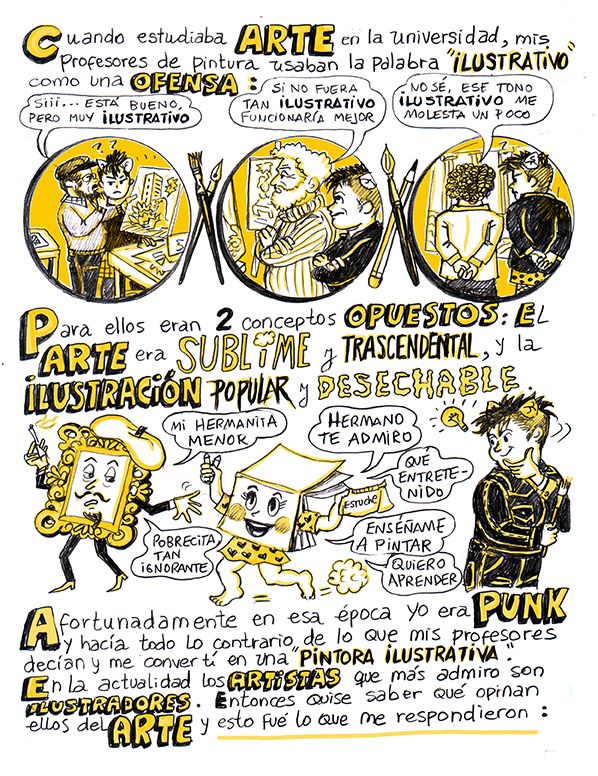 Cuando estudiaba ARTE en la universidad, mis
Profesores de pintura usaban la palabra "ILUSTRATIVO"
como una OFENSA:
SIII... ESTÁ BUENO,
PERO MUY ILUSTRATIVO
SI NO FUERA
TAN ILUSTRATIVO
FUNCIONARÍA MEJOR
NO SÉ, ESE TONO
ILUSTRATIVO ME
MOLESTA UN POCO
??
??
Para ellos eran 2 conceptos OPUESTOS: EL
ARTE era SUBLIME y TRASCENDENTAL, y la
ILUSTRACIÓN POPULAR y DESECHABLE.
MI HERMANITA
MENOR
HERMANO
TE ADMIRO
QUÉ
ENTRETE-
NIDO
ESTUCHE
POBRECITA
TAN
IGNORANTE
ENSÉÑAME
A PINTAR
QUIERO
APRENDER
Afortunadamente en esa época yo era PUNK
y hacía todo lo contrario de lo que mis profesores
decían y me convertí en una "PINTORA ILUSTRATIVA".
En la actualidad los ARTISTAS que más admiro son
ILUSTRADORES. Entonces quise saber qué opinan
ellos del ARTE y esto fué lo que me respondieron: